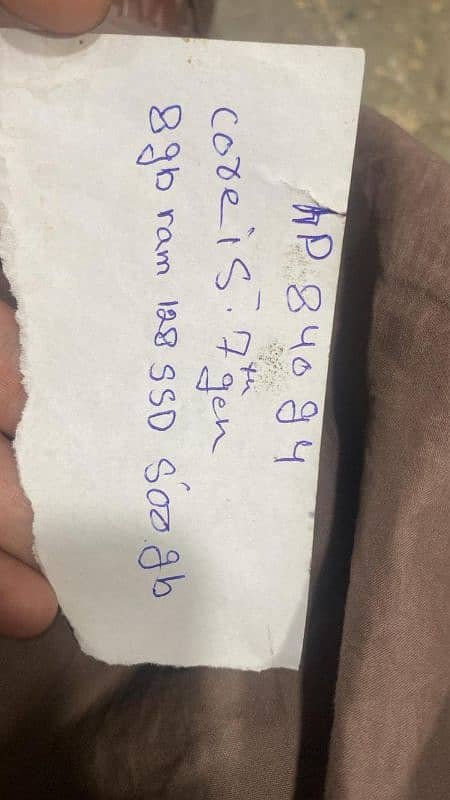 HP 840 g4
core i5. 7th gen
8gb ram 128 SSD 500.gb